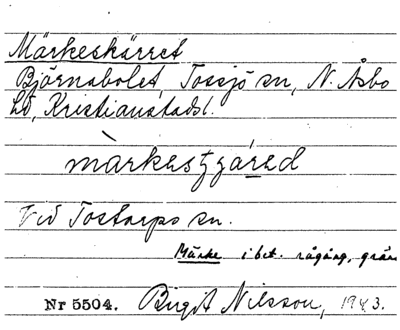 Märkeskärret
Björnabolet, Tossjö sn, N. Åsbo
hd, Kristianstads l.
màrkes
Vid Tostarps sn.
Märke i bet. rågång, grän
Nr 5504. Birgit Nilsson, 1943.